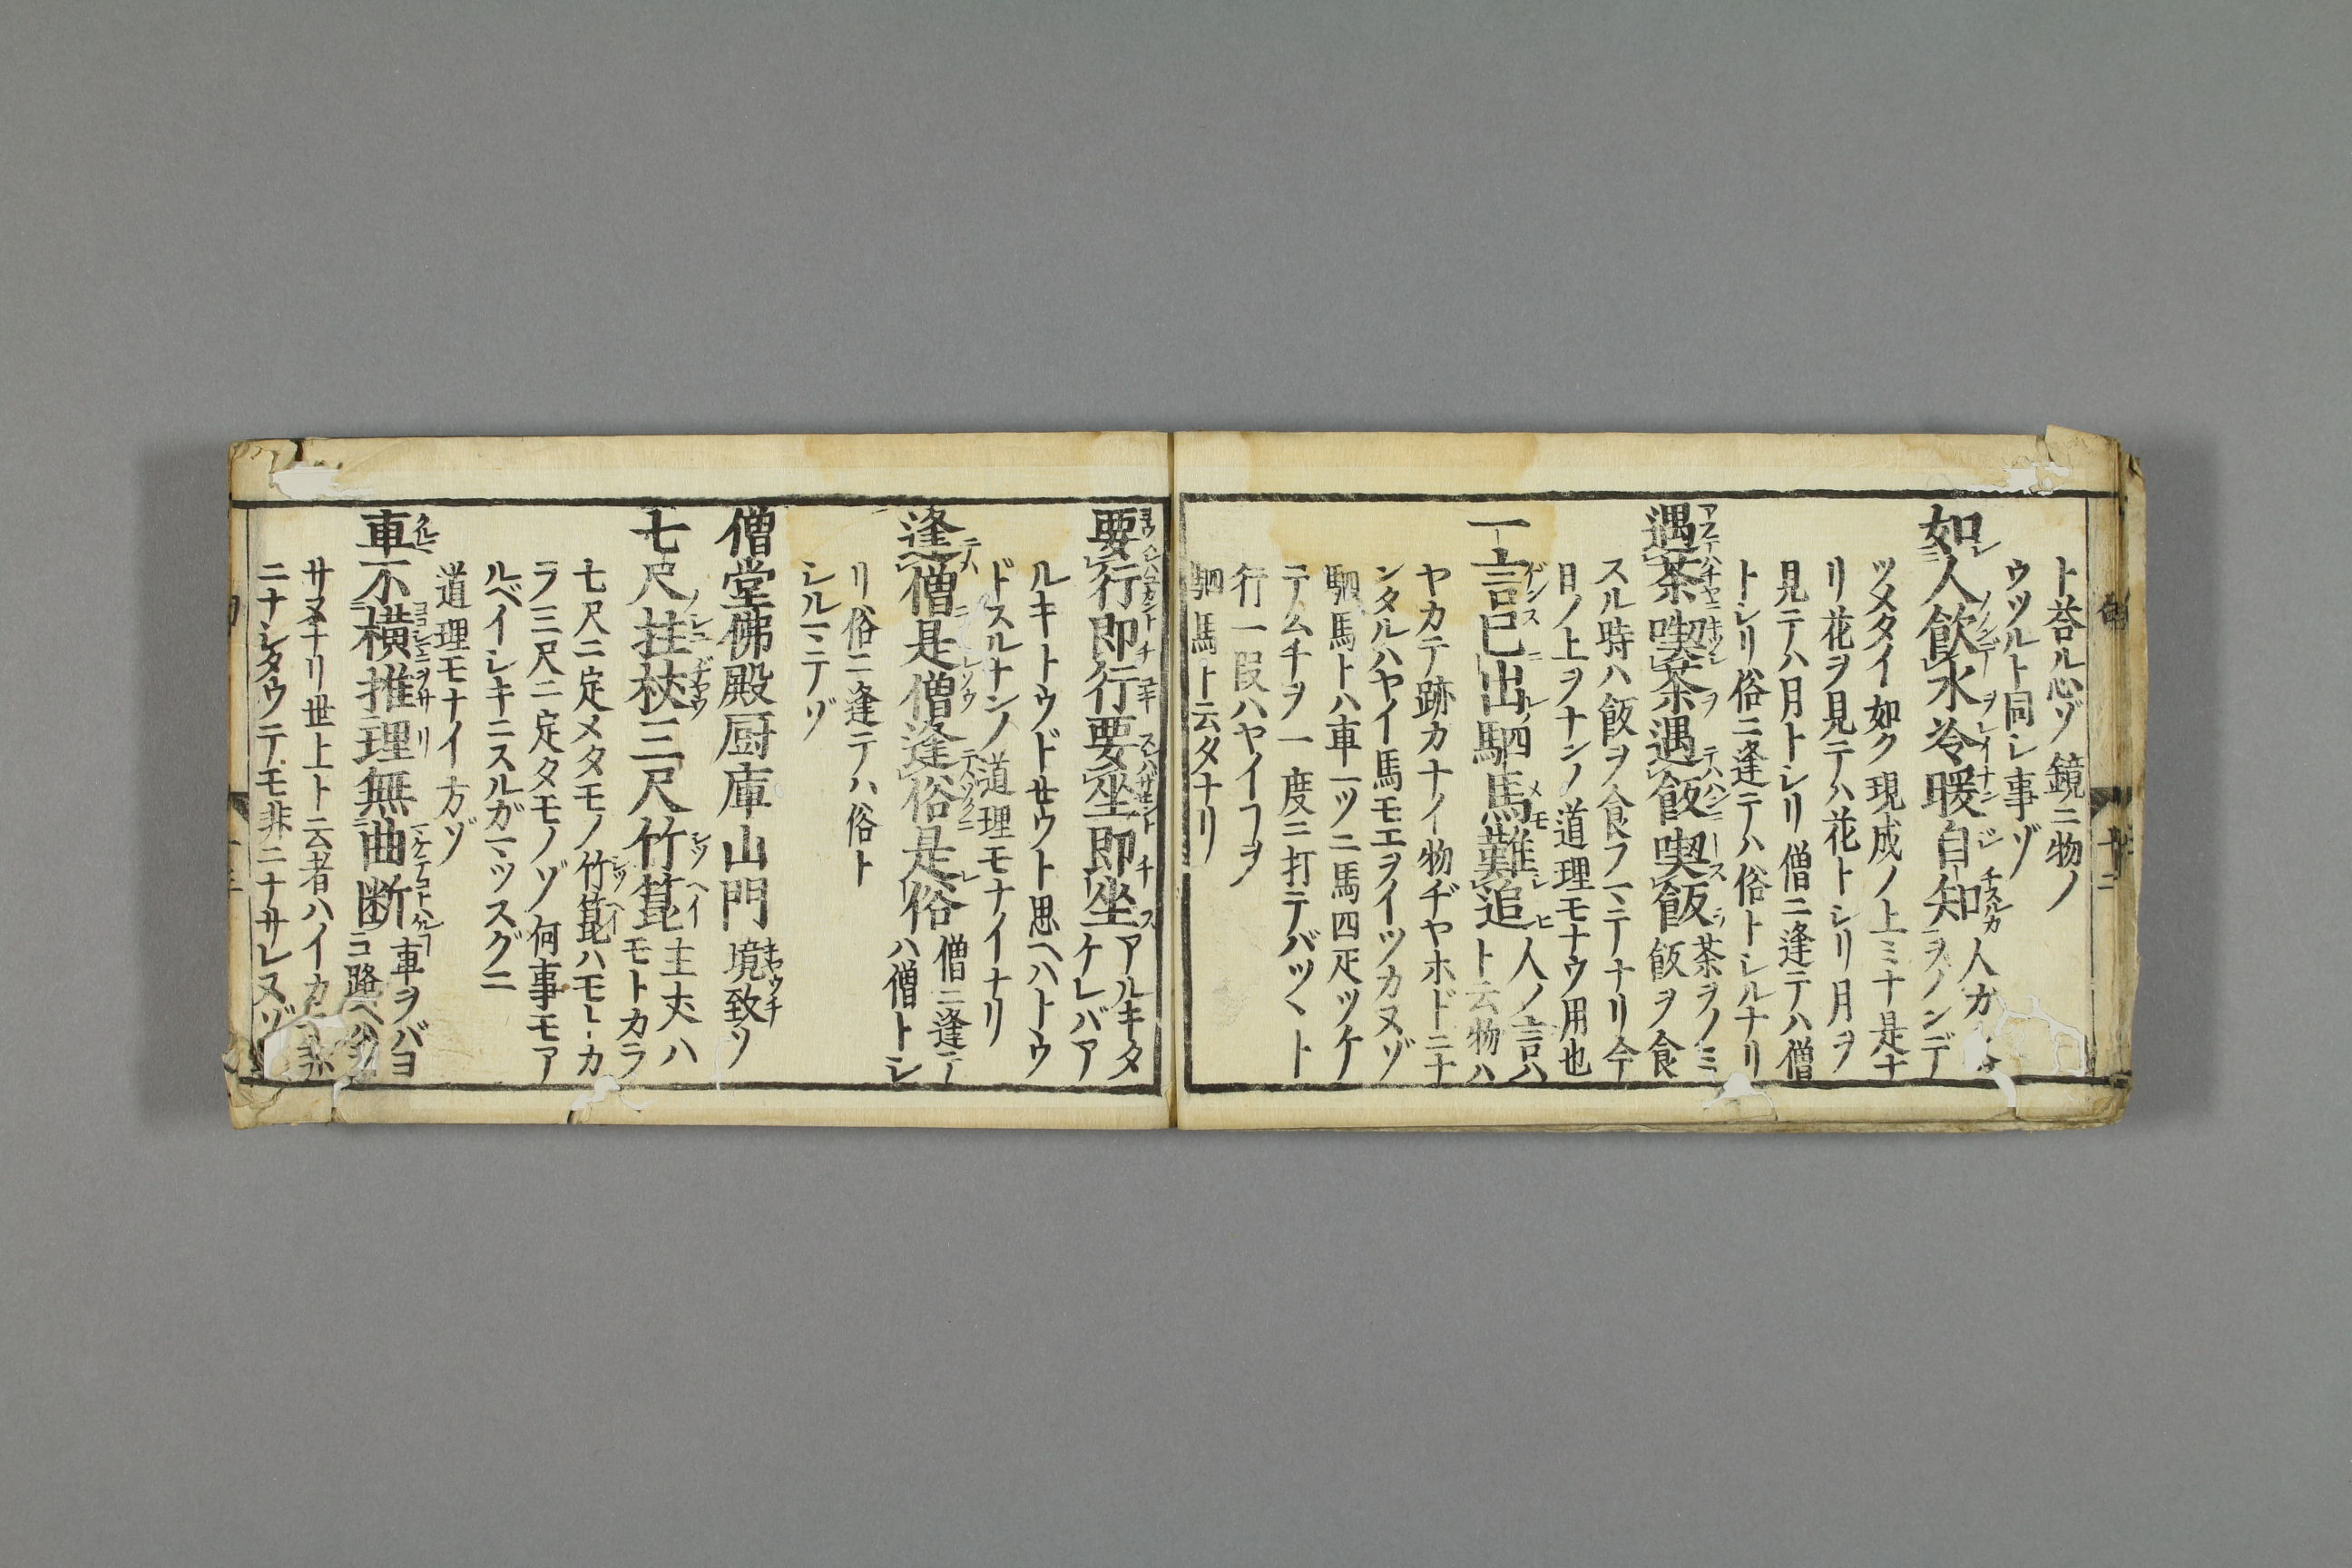 ト荅ル心ゾ鏡ニ物ノ
ウツルト同レ事ゾ
如人飲水冷暖自知 人ガ
ヲノンデ
ツメタイ如ク現成ノ上ミナ是ナ
リ花ヲ見テハ花トシリ月ヲ
見テハ月トシリ僧ニ逢テハ僧
トシリ俗ニ逢テハ俗トシルナリ
遇茶喫茶遇飯喫飯 茶ヲノミ
飯ヲ食
スル時ハ飯ヲ食フ ニテナリ今
日ノ上ヲナシノ道理モナウ用也
一言已出駟馬難追 人ノ言ハ
ト云物ハ
ヤカテ跡カナイ物ヂヤホドニナ
ンタルハヤイ馬モエヲイツカヌゾ
駟馬トハ車一ツニ馬四疋ツケ
テムチヲ一度ニ打テバツ〱ト
行一段ハヤイヿヲ
駟馬ト云タナリ
要行即行要坐即坐 アルキタ
ケレバア
ルキトウドせウト思ヘハトウ
ドスルナンノ道理モナイナリ
逢僧是僧逢俗是俗 僧ニ逢テ
ハ僧トシ
リ俗ニ逢テハ俗ト
シル ニテゾ
僧堂佛殿厨庫山門 境致ソ
七尺拄杖三尺竹篦 主丈ハ
モトカラ
七尺ニ定メタモノ竹篦ハモトカ
ラ三尺ニ定タモノゾ何事モア
ルベイシキニスルガ一ツスグニ
道理モナイ方ゾ
車不横推理無曲断 車ヲバヨ
コ路ヘハ
サヌナリ世上ト云者ハイカ 非
ニナシタウテモ非ニナサレヌゾ
十二